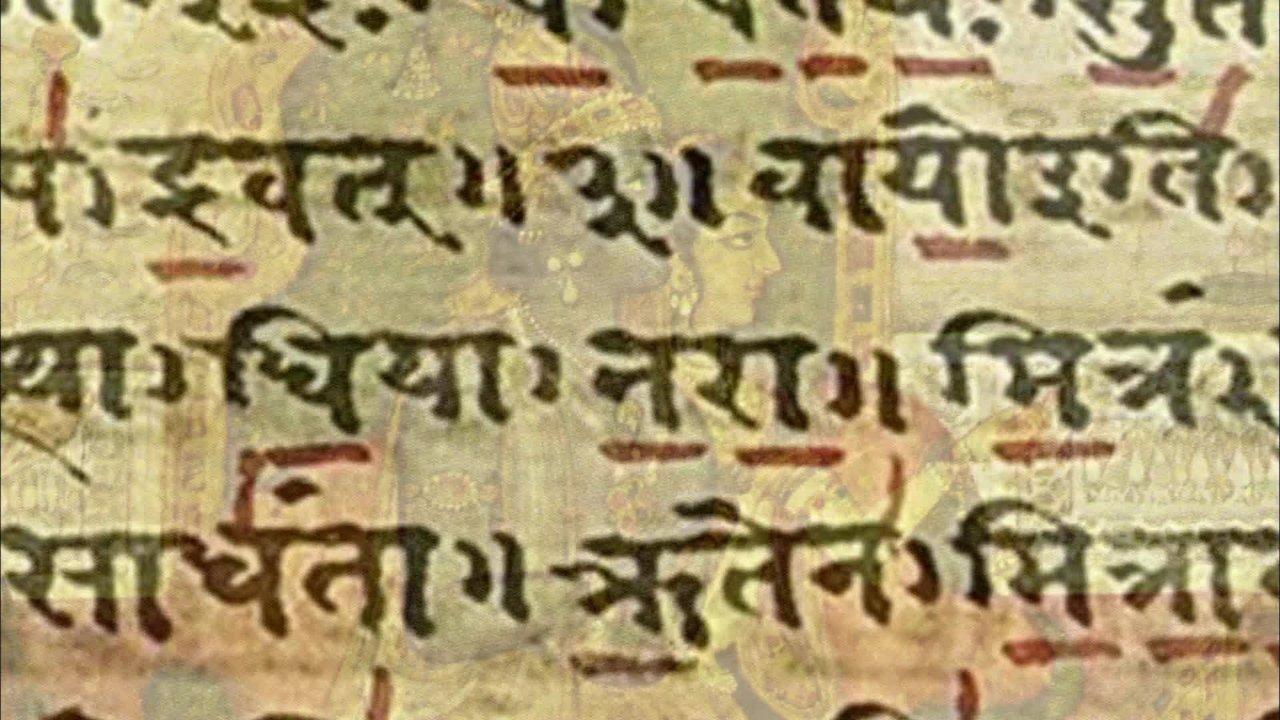 प। द्रवत्॥ ॥ वायोइति।
त्था। धिया। नरा॥ मित्रं।
साधंता॥ ऋतेन। मित्रा